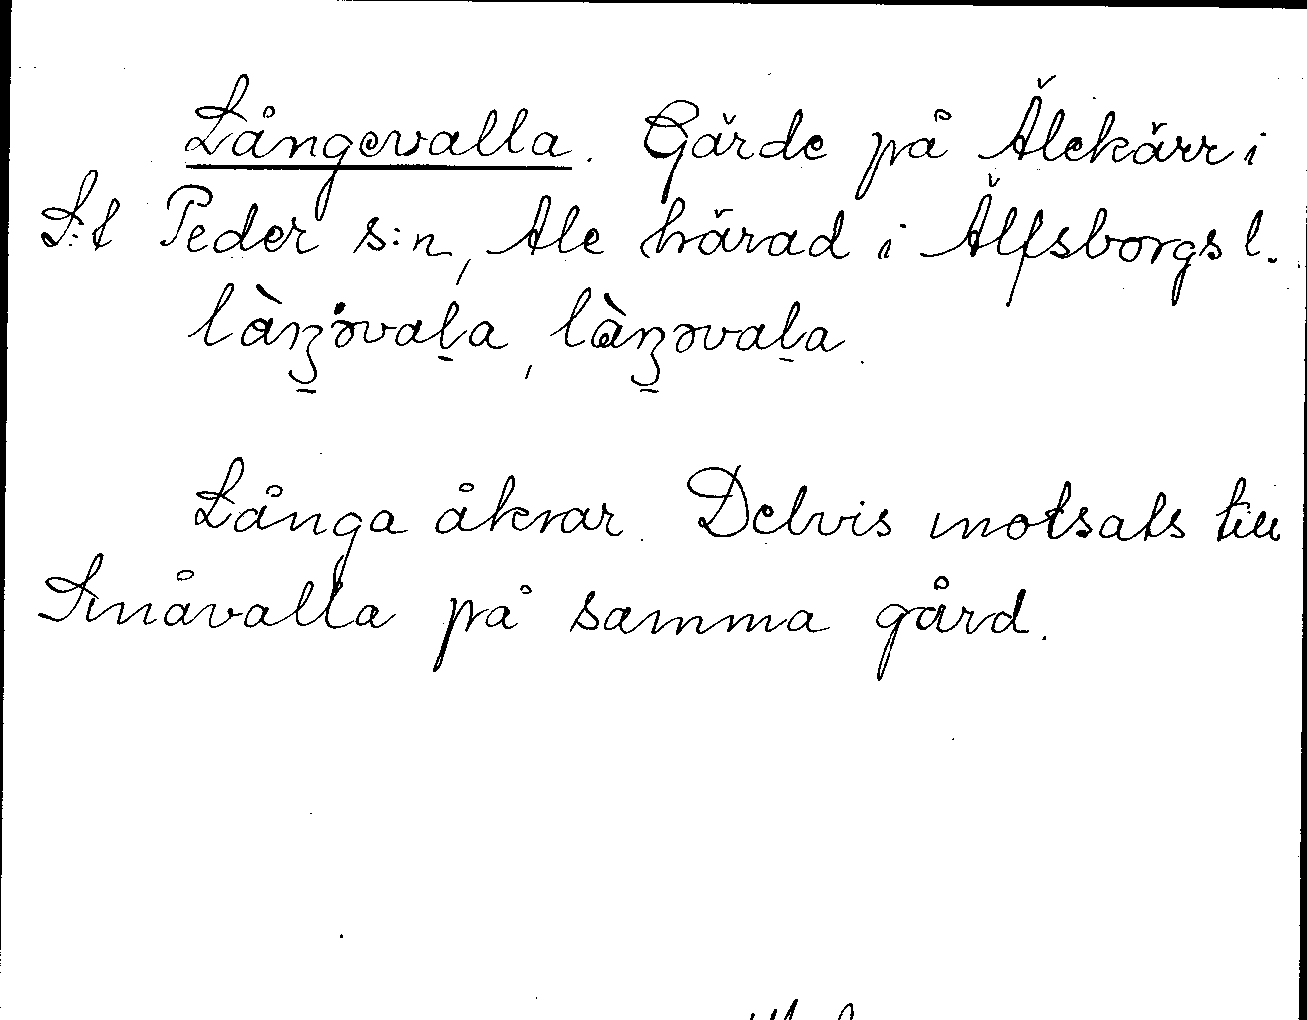 Långevalla. Gärde på Älekärr i
S:t Peder s:n, Ale härad i Älfsborgs l.
làŋəvaḻa, làŋəvaḻa.
Långa åkrar. Delvis motsats till
Småvalla på samma gård.